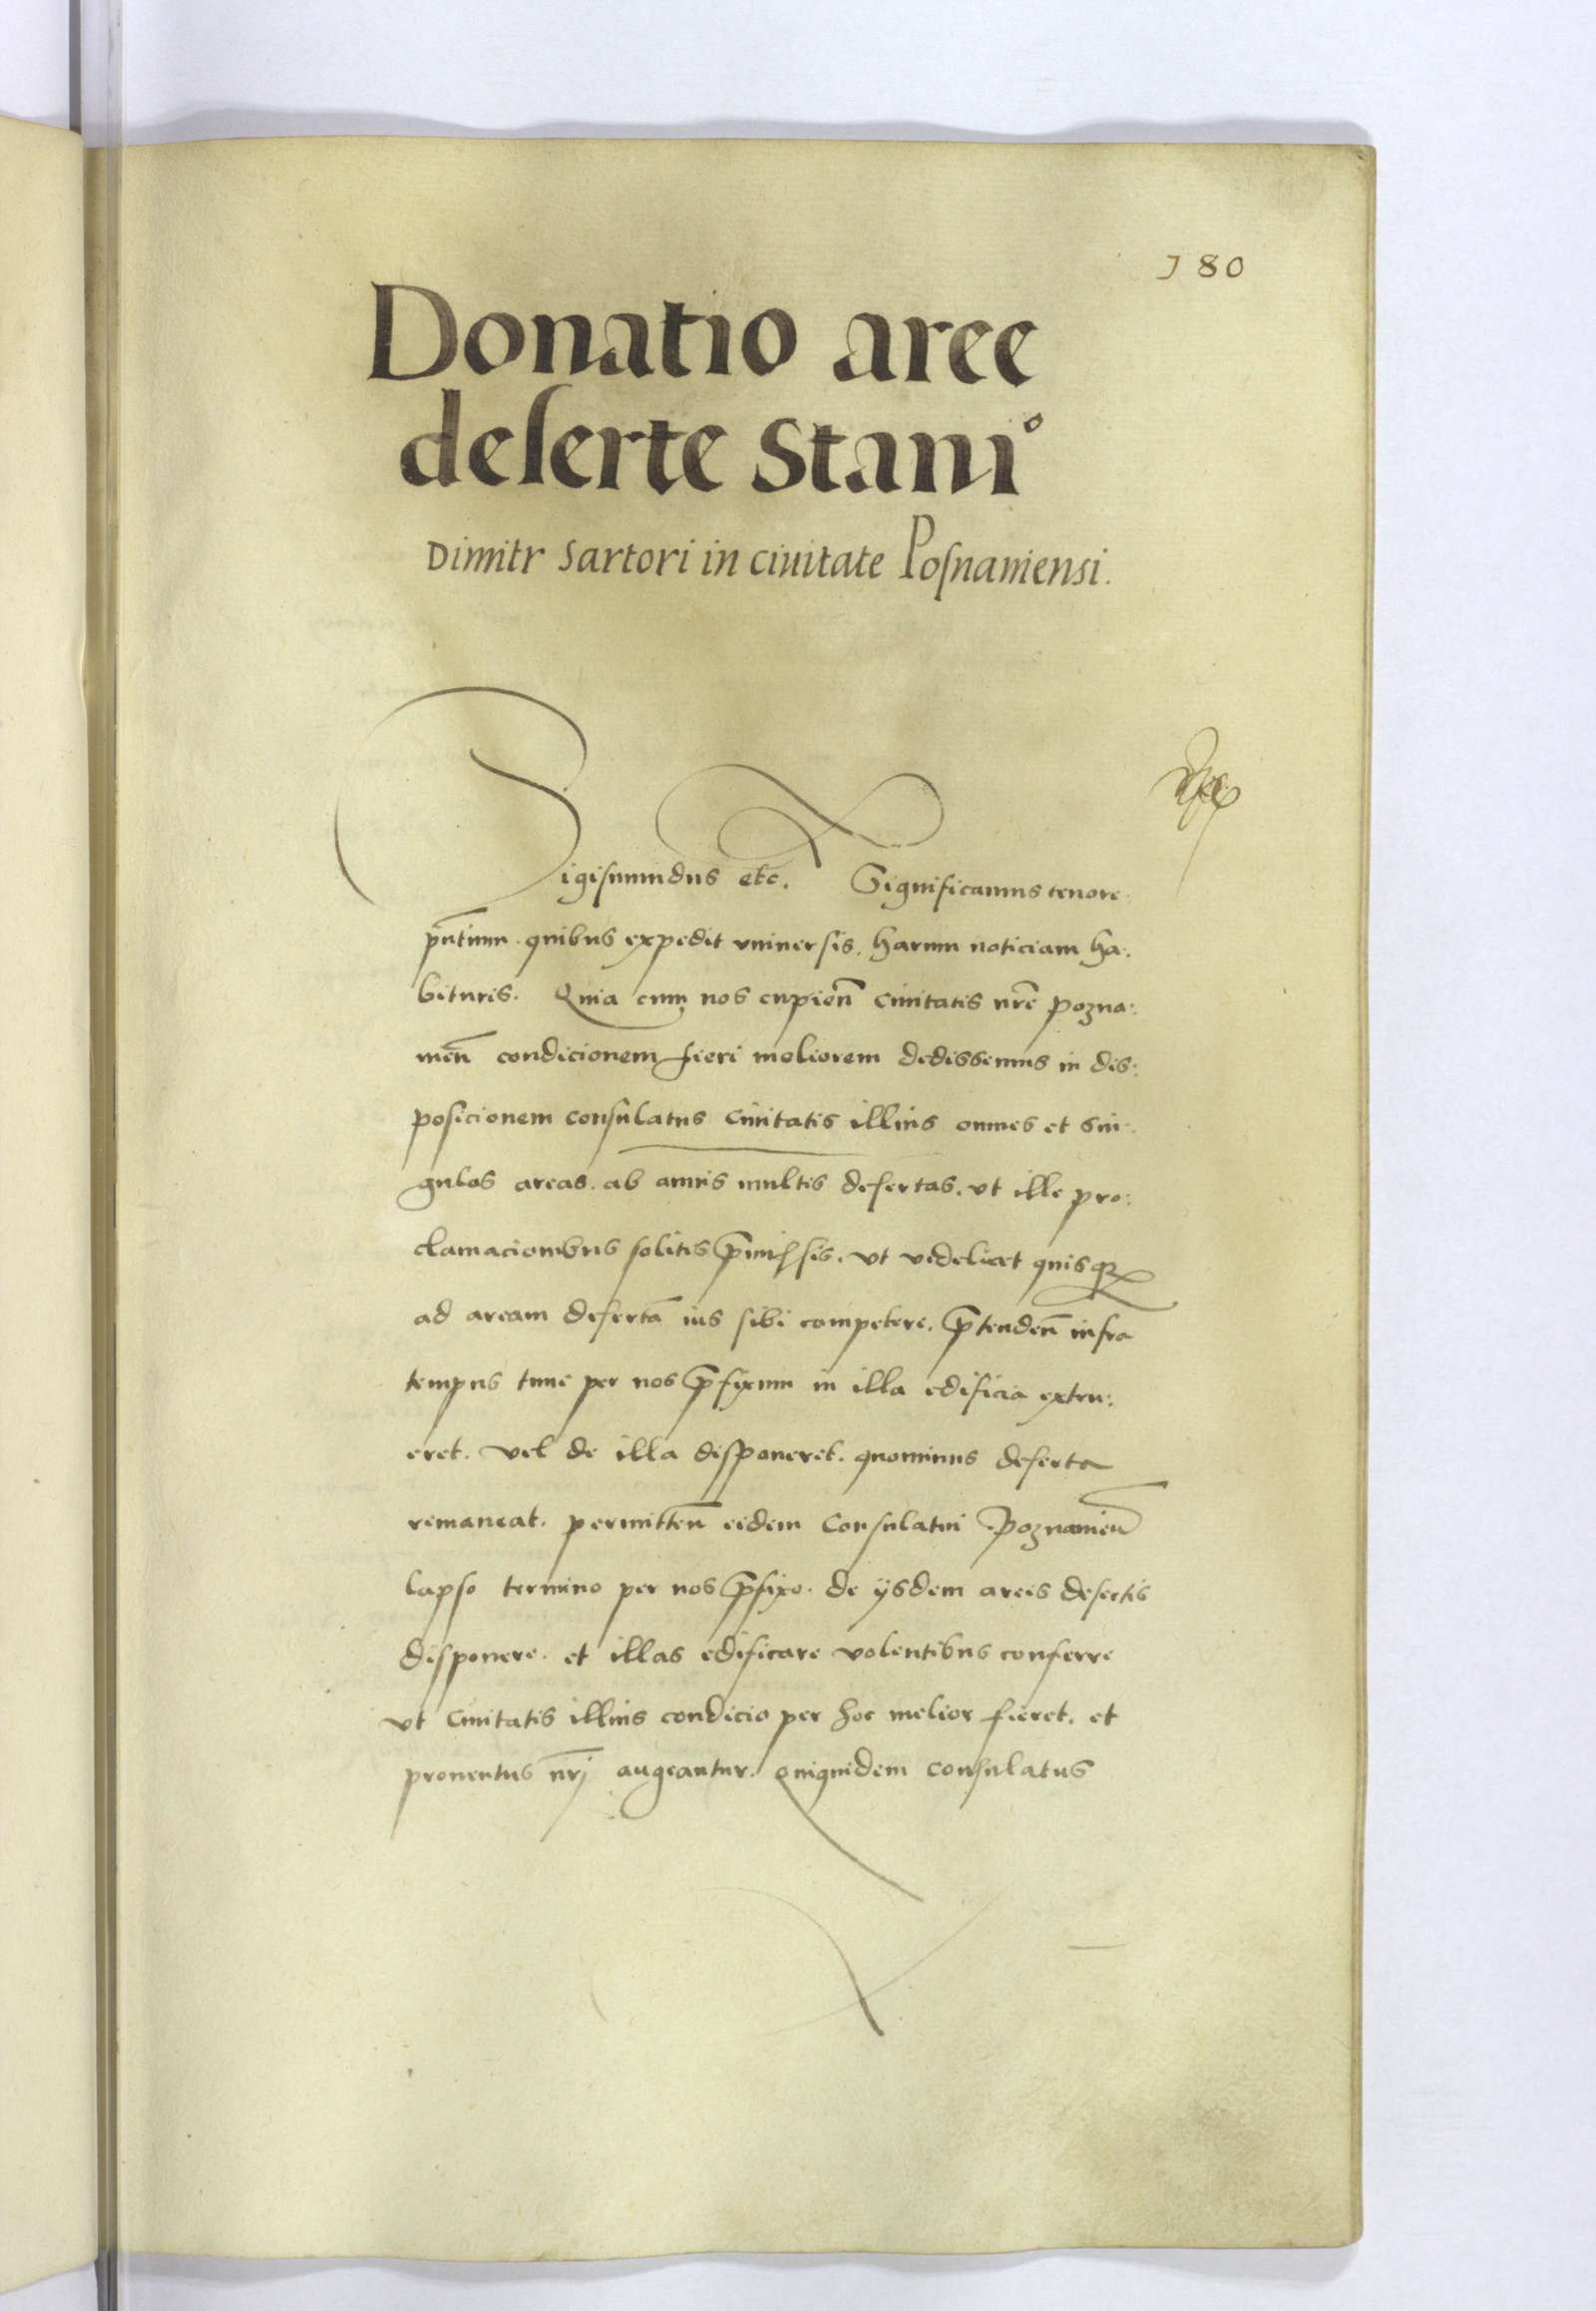 180
Donatio aree
deserte Stani°
Dimitr Sartori in ciuitate Posnaniensi.
Sigismundus etc. Significamus tenore
pñtium quibus expedit vniuersis. harum noticiam ha:
bituris. Quia cum nos cupieñ Ciuitatis nr̃e Pozna:
nieñ condicionem fieri meliorem dedissemus in dis:
posicionem consulatus Ciuitatis illius omnes et sin:
gulas areas. ab annis multis desertas. vt ille pro:
clamacionibus solitis p̄missis. vt videlicet quisq₃
ad aream desertã ius sibi competere. p̄tendeñ infra
tempus tunc per nos p̄fixum in illa edificia extru:
eret. vel de illa disponeret. quominus deserta
remaneat. permitteñ eidem Consulatui Poznanieñ
lapso termino per nos p̄fixo. de ijsdem areis desertis
disponere. et illas edificare volentibus conferre
vt Ciuitatis illius condicio per hoc melior fieret. et
prouentus nr̃j augeantur. Quiquidem consulatus